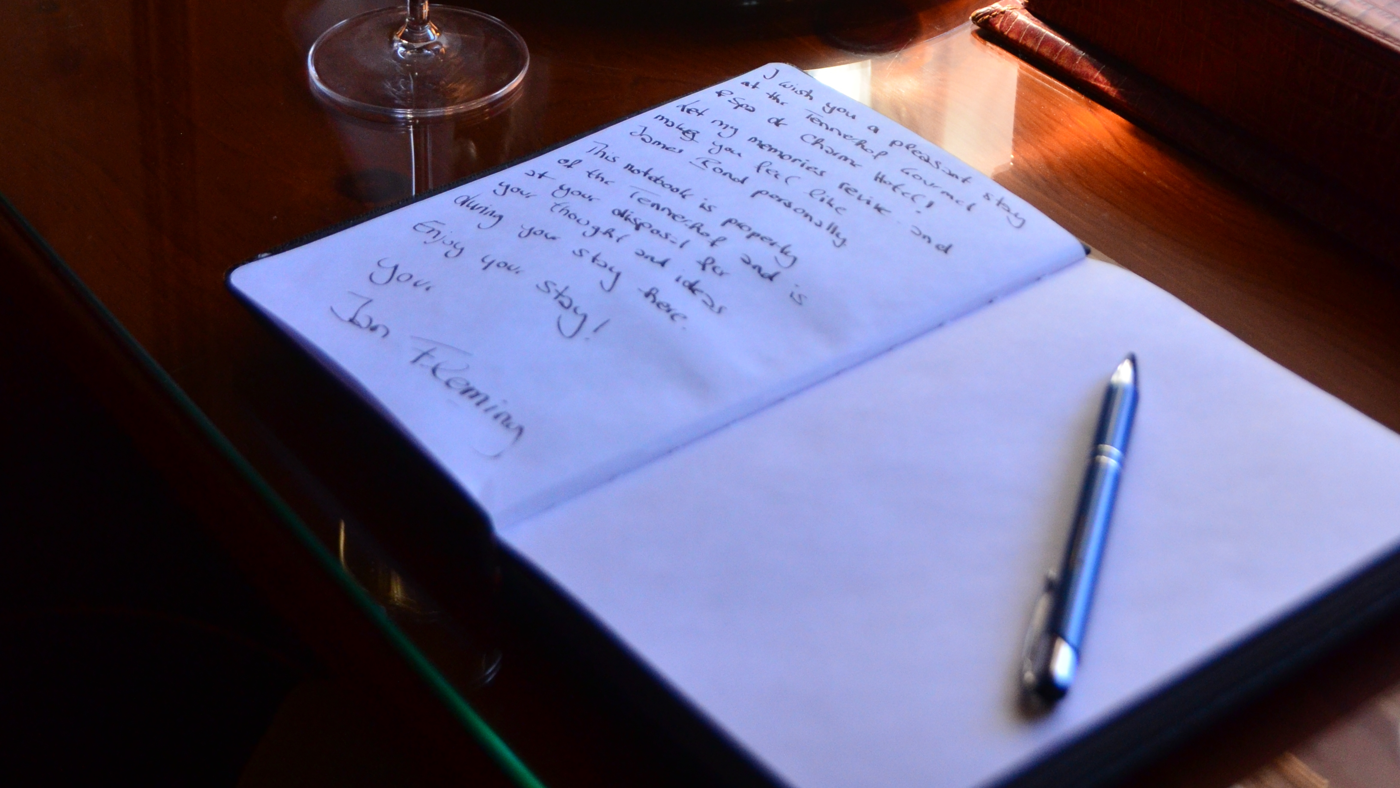 I wish you a pleasant stay
at the Tennerhof Gourmet
& Spa de Charme Hotel!
Let my memories revive and
making you feel like
James Bond personally
This notebook is property
of the Tennerhof and is
at your disposal for
your thought and ideas
during your stay here.
Enjoy your stay!
your
Ian Fleming